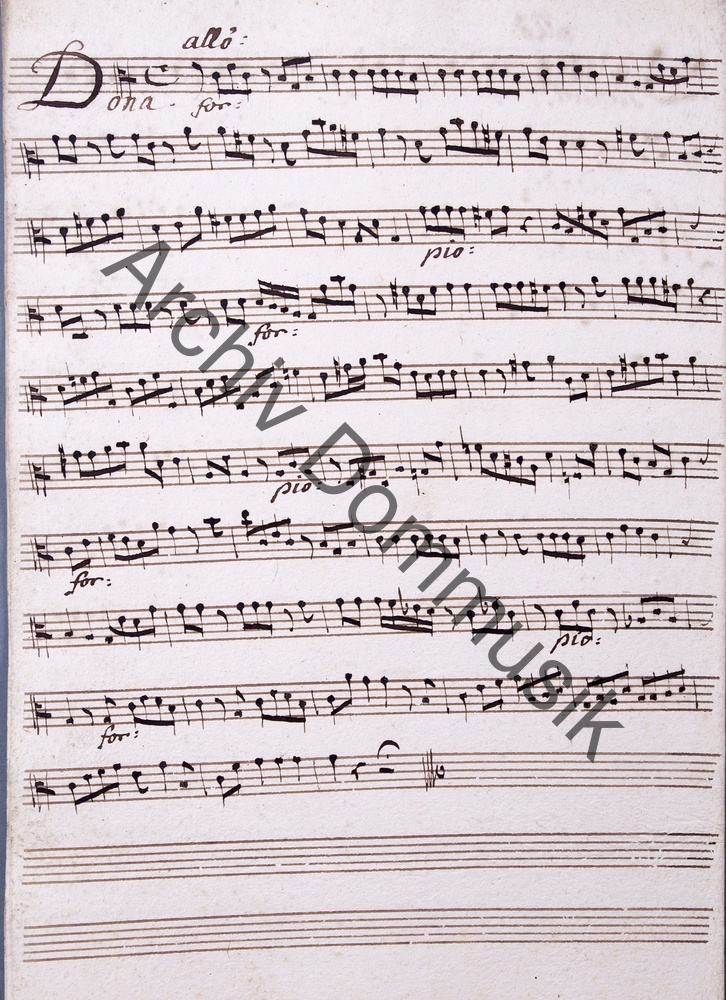 allo:
Dona. for:
pio:
for:
pio:
for:
pio:
for:
Archiv Dommusik